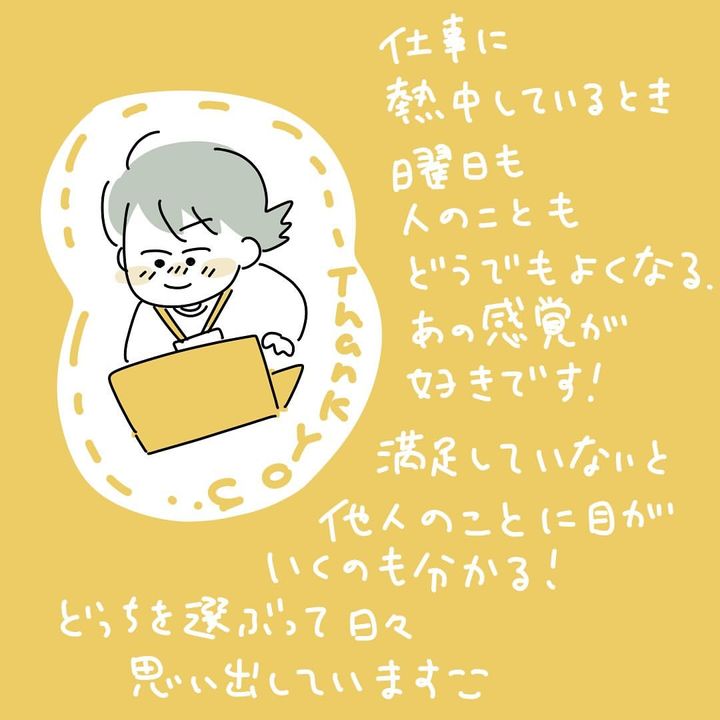 仕事に
熱中しているとき
曜日も
人のことも
どうでもよくなる.
あの感覚が
好きです!
満足していないと
他人のことに目が
いくのも分かる!
どっちを選ぶって日々
思い出しています
Thank
You..